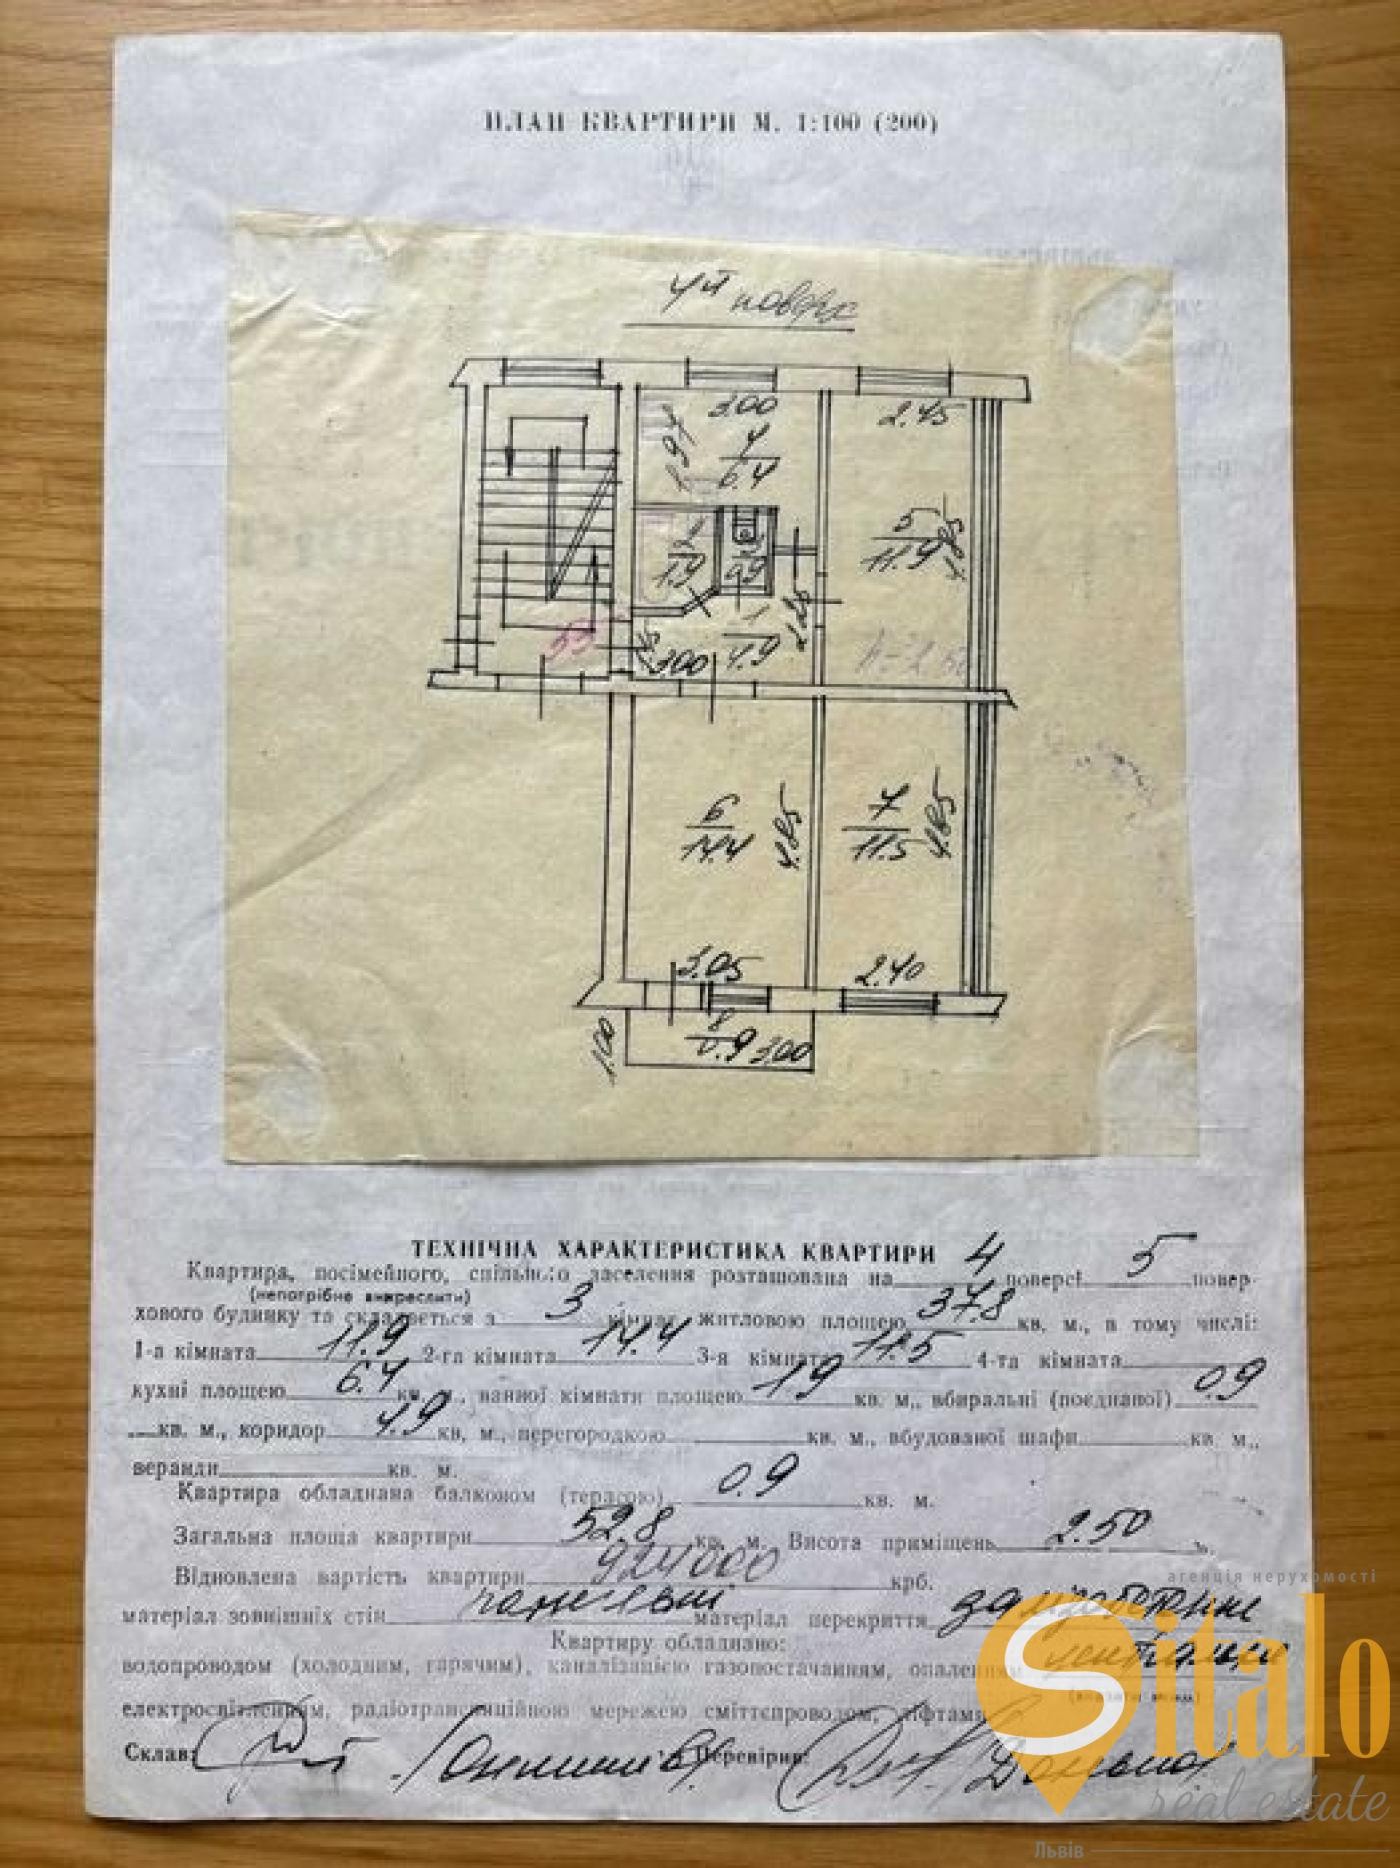 ПЛАН КВАРТИРИ М. 1:100 (200)
4й поверх
3.00
2.45
4
6.4
2
1.9
3
0.9
5
11.9
4.85
1
4.9
2.25
3.00
55
h=2.50
6
14.4
4.85
7
11.5
4.85
3.05
2.40
8
0.9
3.00
1.00
ТЕХНІЧНА ХАРАКТЕРИСТИКА КВАРТИРИ
Квартира, посімейного, спільного заселення розташована на 4 поверсі 5 повер-
(непотрібне викреслити)
хового будинку та складається з 3 кімнат житловою площею 37.8 кв. м., в тому числі:
1-а кімната 11.9 2-га кімната 14.4 3-я кімната 11.5 4-та кімната
кухні площею 6.4 кв. м., ванної кімнати площею 1.9 кв. м., вбиральні (поєднаної) 0.9
кв. м., коридор 4.9 кв. м., перегородкою кв. м., вбудованої шафи кв. м.,
веранди кв. м.
Квартира обладнана балконом (терасою) 0.9 кв. м.
Загальна площа квартири 52.8 кв. м. Висота приміщень 2.50 м.
Відновлена вартість квартири 924000 крб.
матеріал зовнішніх стін панельні матеріал перекриття залізобетонне
Квартиру обладнано:
водопроводом (холодним, гарячим), каналізацією газопостачанням, опаленням
електросвітленням, радіотрансляційною мережею сміттєпроводом, ліфтами
Склав: Перевірив:
агенція нерухомості
Sitalo
real estate
Львів